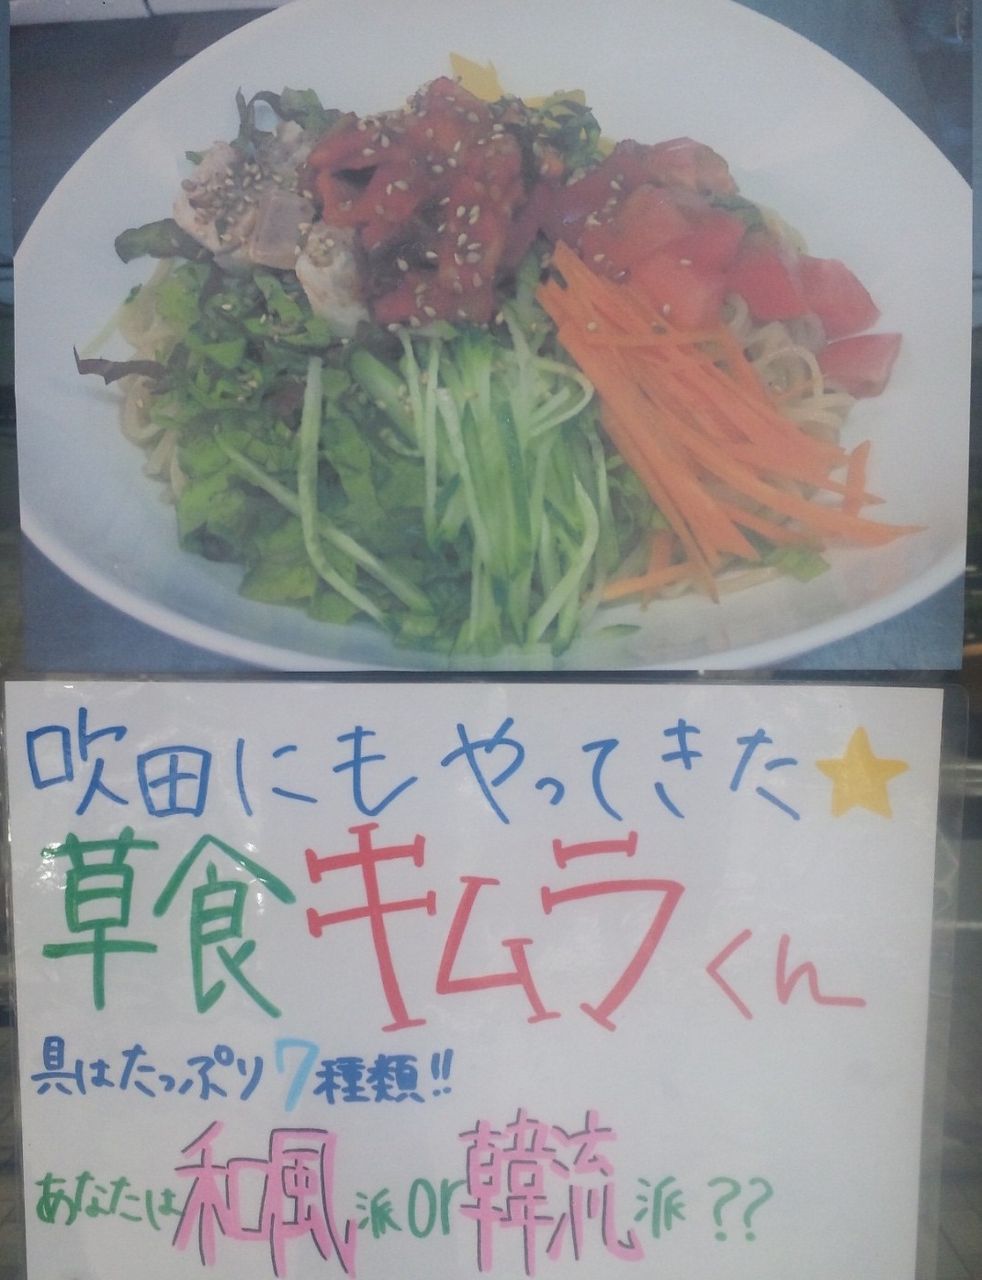 吹田にもやってきた
草食キムラくん
具はたっぷり7種類!!
あなたは和風派or韓流派??